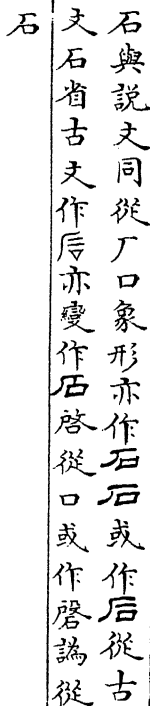 石與説文同從厂口象形亦作石石或作后從古
文石省古文作后亦變作石啓從口或作啓譌從
石